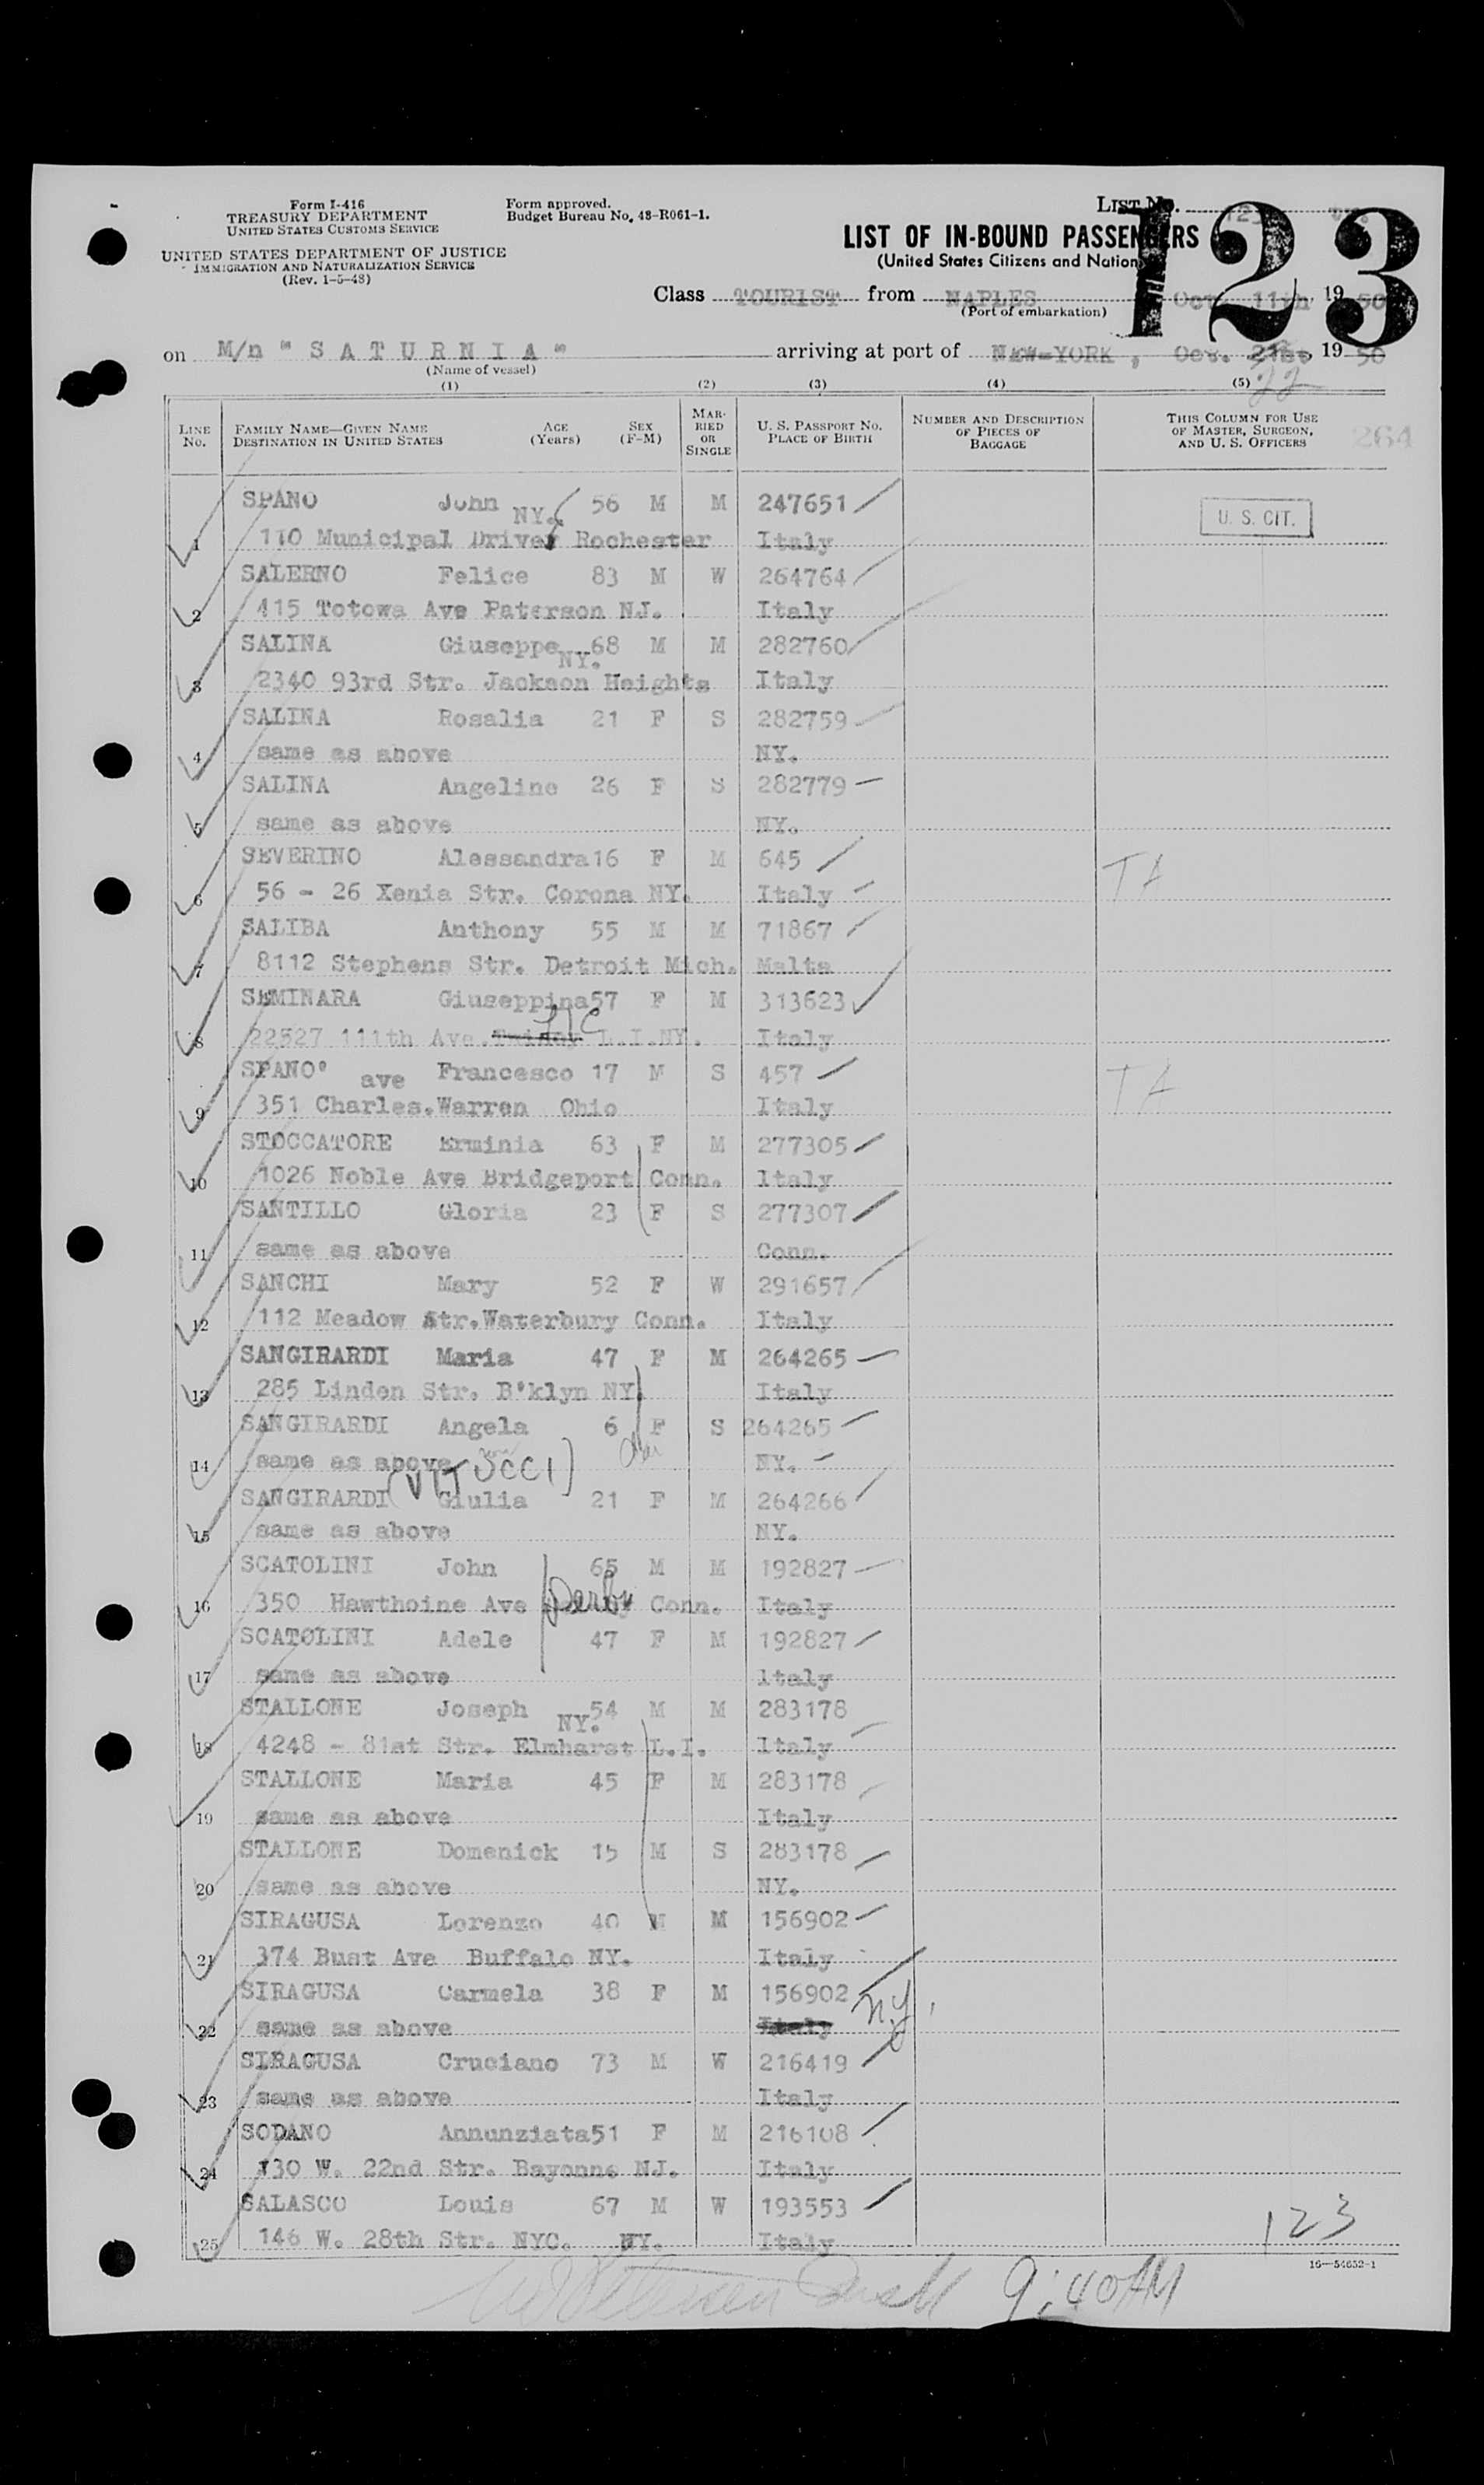 Form I-416
TREASURY DEPARTMENT
UNITED STATES CUSTOMS SERVICE
UNITED STATES DEPARTMENT OF JUSTICE
IMMIGRATION AND NATURALIZATION SERVICE
(Rev. 1-5-48)
Form approved.
Budget Bureau No. 48-R061-1.
LIST NO. 123
123
LIST OF IN-BOUND PASSENGERS
(United States Citizens and Nation
Class TOURIST from NAPLES Oct. 11th, 1950
(Port of embarkation)
on M/n "SATURNIA" arriving at port of NEW-YORK, Oct. 21st, 1950
(Name of vessel)
22
(1) (2) (3) (4) (5)
LINE No. FAMILY NAME—GIVEN NAME DESTINATION IN UNITED STATES AGE (Years) SEX (F-M) MARRIED OR SINGLE U. S. PASSPORT NO. PLACE OF BIRTH NUMBER AND DESCRIPTION OF PIECES OF BAGGAGE THIS COLUMN FOR USE OF MASTER, SURGEON, AND U. S. OFFICERS
264
SPANO John 56 M M 247651 U. S. CIT.
NY.
1 110 Municipal Drive Rochester Italy
SALERNO Felice 83 M W 264764
2 415 Totowa Ave Paterson NJ. Italy
SALINA Giuseppe 68 M M 282760
NY.
3 2340 93rd Str. Jackson Heights Italy
SALINA Rosalia 21 F S 282759
4 same as above NY.
SALINA Angeline 26 F S 282779
5 same as above NY.
SEVERINO Alessandra 16 F M 645
6 56 - 26 Xenia Str. Corona NY. Italy
SALIBA Anthony 55 M M 71867
7 8112 Stephens Str. Detroit Mich. Malta
SEMINARA Giuseppina 57 F M 313623
8 22527 111th Ave. L.I.NY. Italy
SPANO° Francesco 17 M S 457
ave
9 351 Charles.Warren Ohio Italy
STOCCATORE Erminia 63 F M 277305
10 1026 Noble Ave Bridgeport Conn. Italy
SANTILLO Gloria 23 F S 277307
11 same as above Conn.
SANCHI Mary 52 F W 291657
12 112 Meadow Str.Waterbury Conn. Italy
SANGIRARDI Maria 47 F M 264265
13 285 Linden Str. B'klyn NY. Italy
SANGIRARDI Angela 6 F S 264265
14 same as above NY.
(VITUCCI)
SANGIRARDI Giulia 21 F M 264266
15 same as above NY.
SCATOLINI John 65 M M 192827
16 350 Hawthoine Ave Derby Conn. Italy
SCATOLINI Adele 47 F M 192827
17 same as above Italy
STALLONE Joseph 54 M M 283178
NY.
18 4248 - 81st Str. Elmharst L.I. Italy
STALLONE Maria 45 F M 283178
19 same as above Italy
STALLONE Domenick 15 M S 283178
20 same as above NY.
SIRAGUSA Lorenzo 40 M M 156902
21 374 Bust Ave Buffalo NY. Italy
SIRAGUSA Carmela 38 F M 156902
22 same as above Italy N.Y.
SIRAGUSA Cruciano 73 M W 216419
23 same as above Italy
SODANO Annunziata 51 F M 216108
24 130 W. 22nd Str. Bayonne NJ. Italy
SALASCO Louis 67 M W 193553
25 146 W. 28th Str. NYC. NY. Italy
123
16—54632-1
9:40 AM